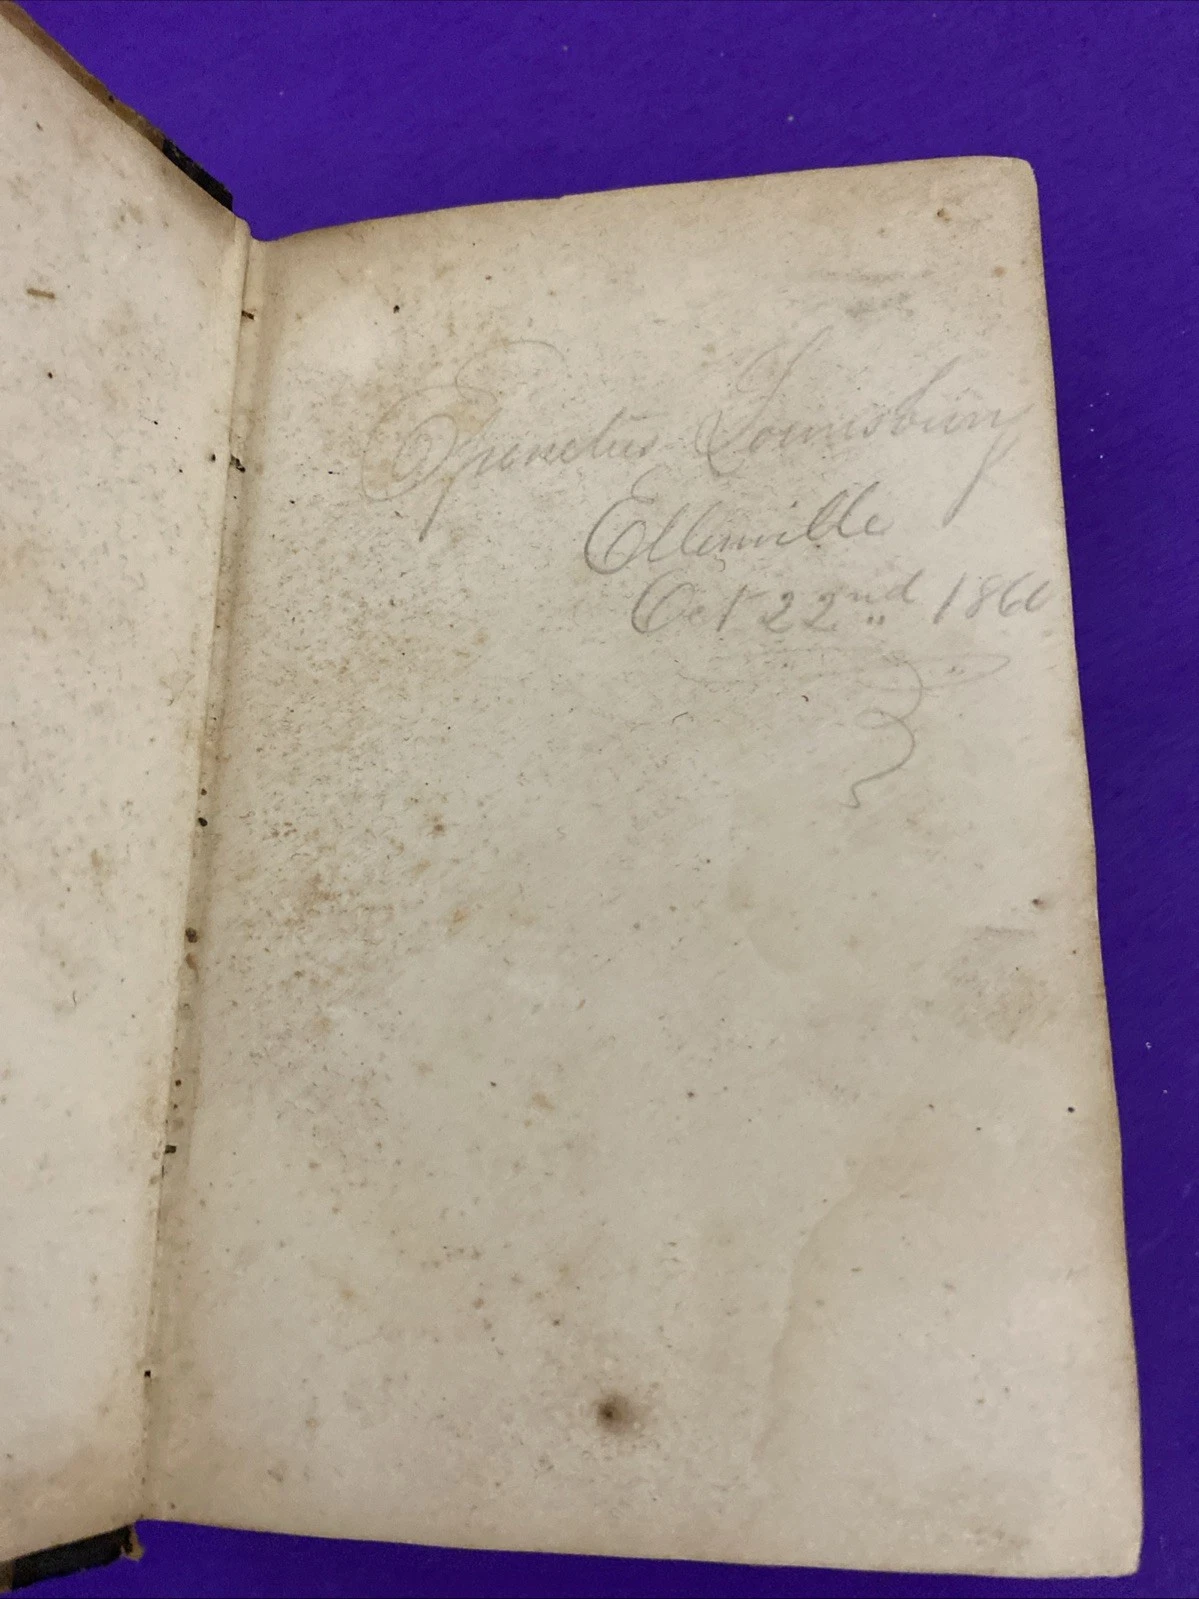 Epenetus Lounsbury
Ellenville
Oct 22nd 1860